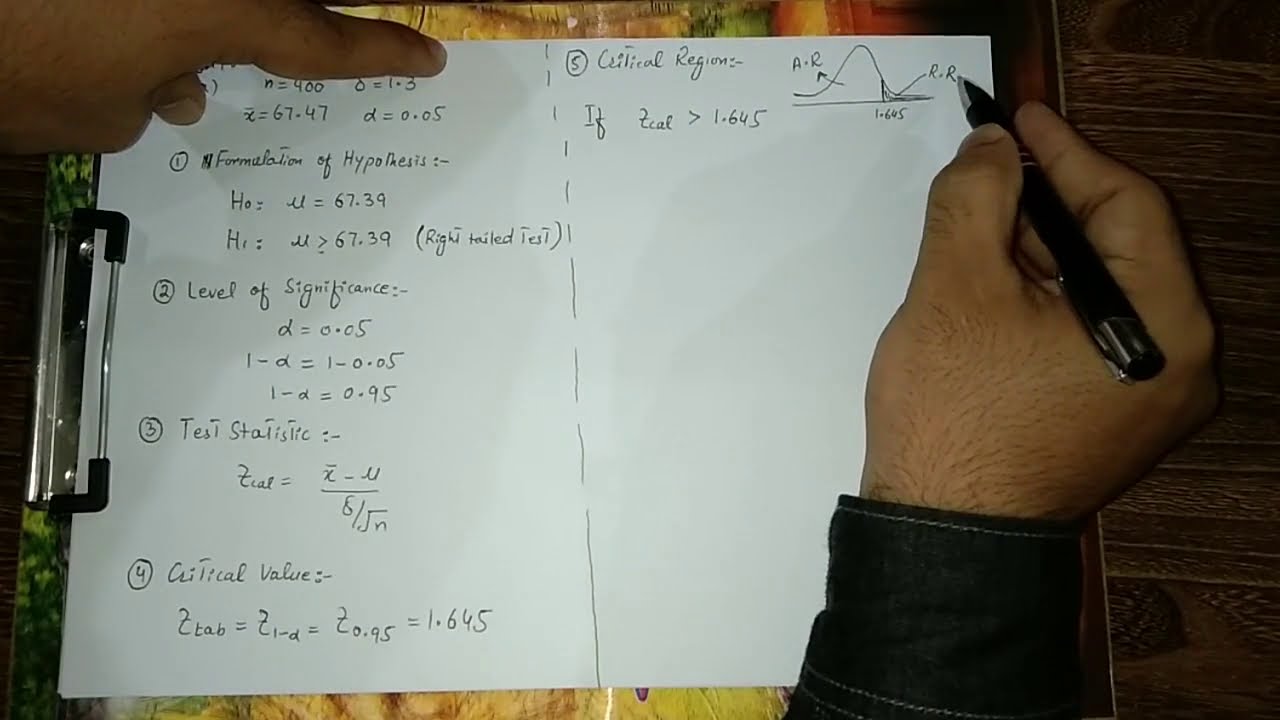 n=400 σ=1.3
x̄=67.47 α=0.05
① Formulation of Hypothesis:-
H₀: μ = 67.39
H₁: μ > 67.39 (Right tailed Test)
② Level of Significance:-
α = 0.05
1-α = 1-0.05
1-α = 0.95
③ Test Statistic :-
Zcal = x̄-μ / σ/√n
④ Critical Value:-
Ztab = Z1-α = Z0.95 = 1.645
⑤ Critical Region:-
A.R
R.R
1.645
If Zcal > 1.645